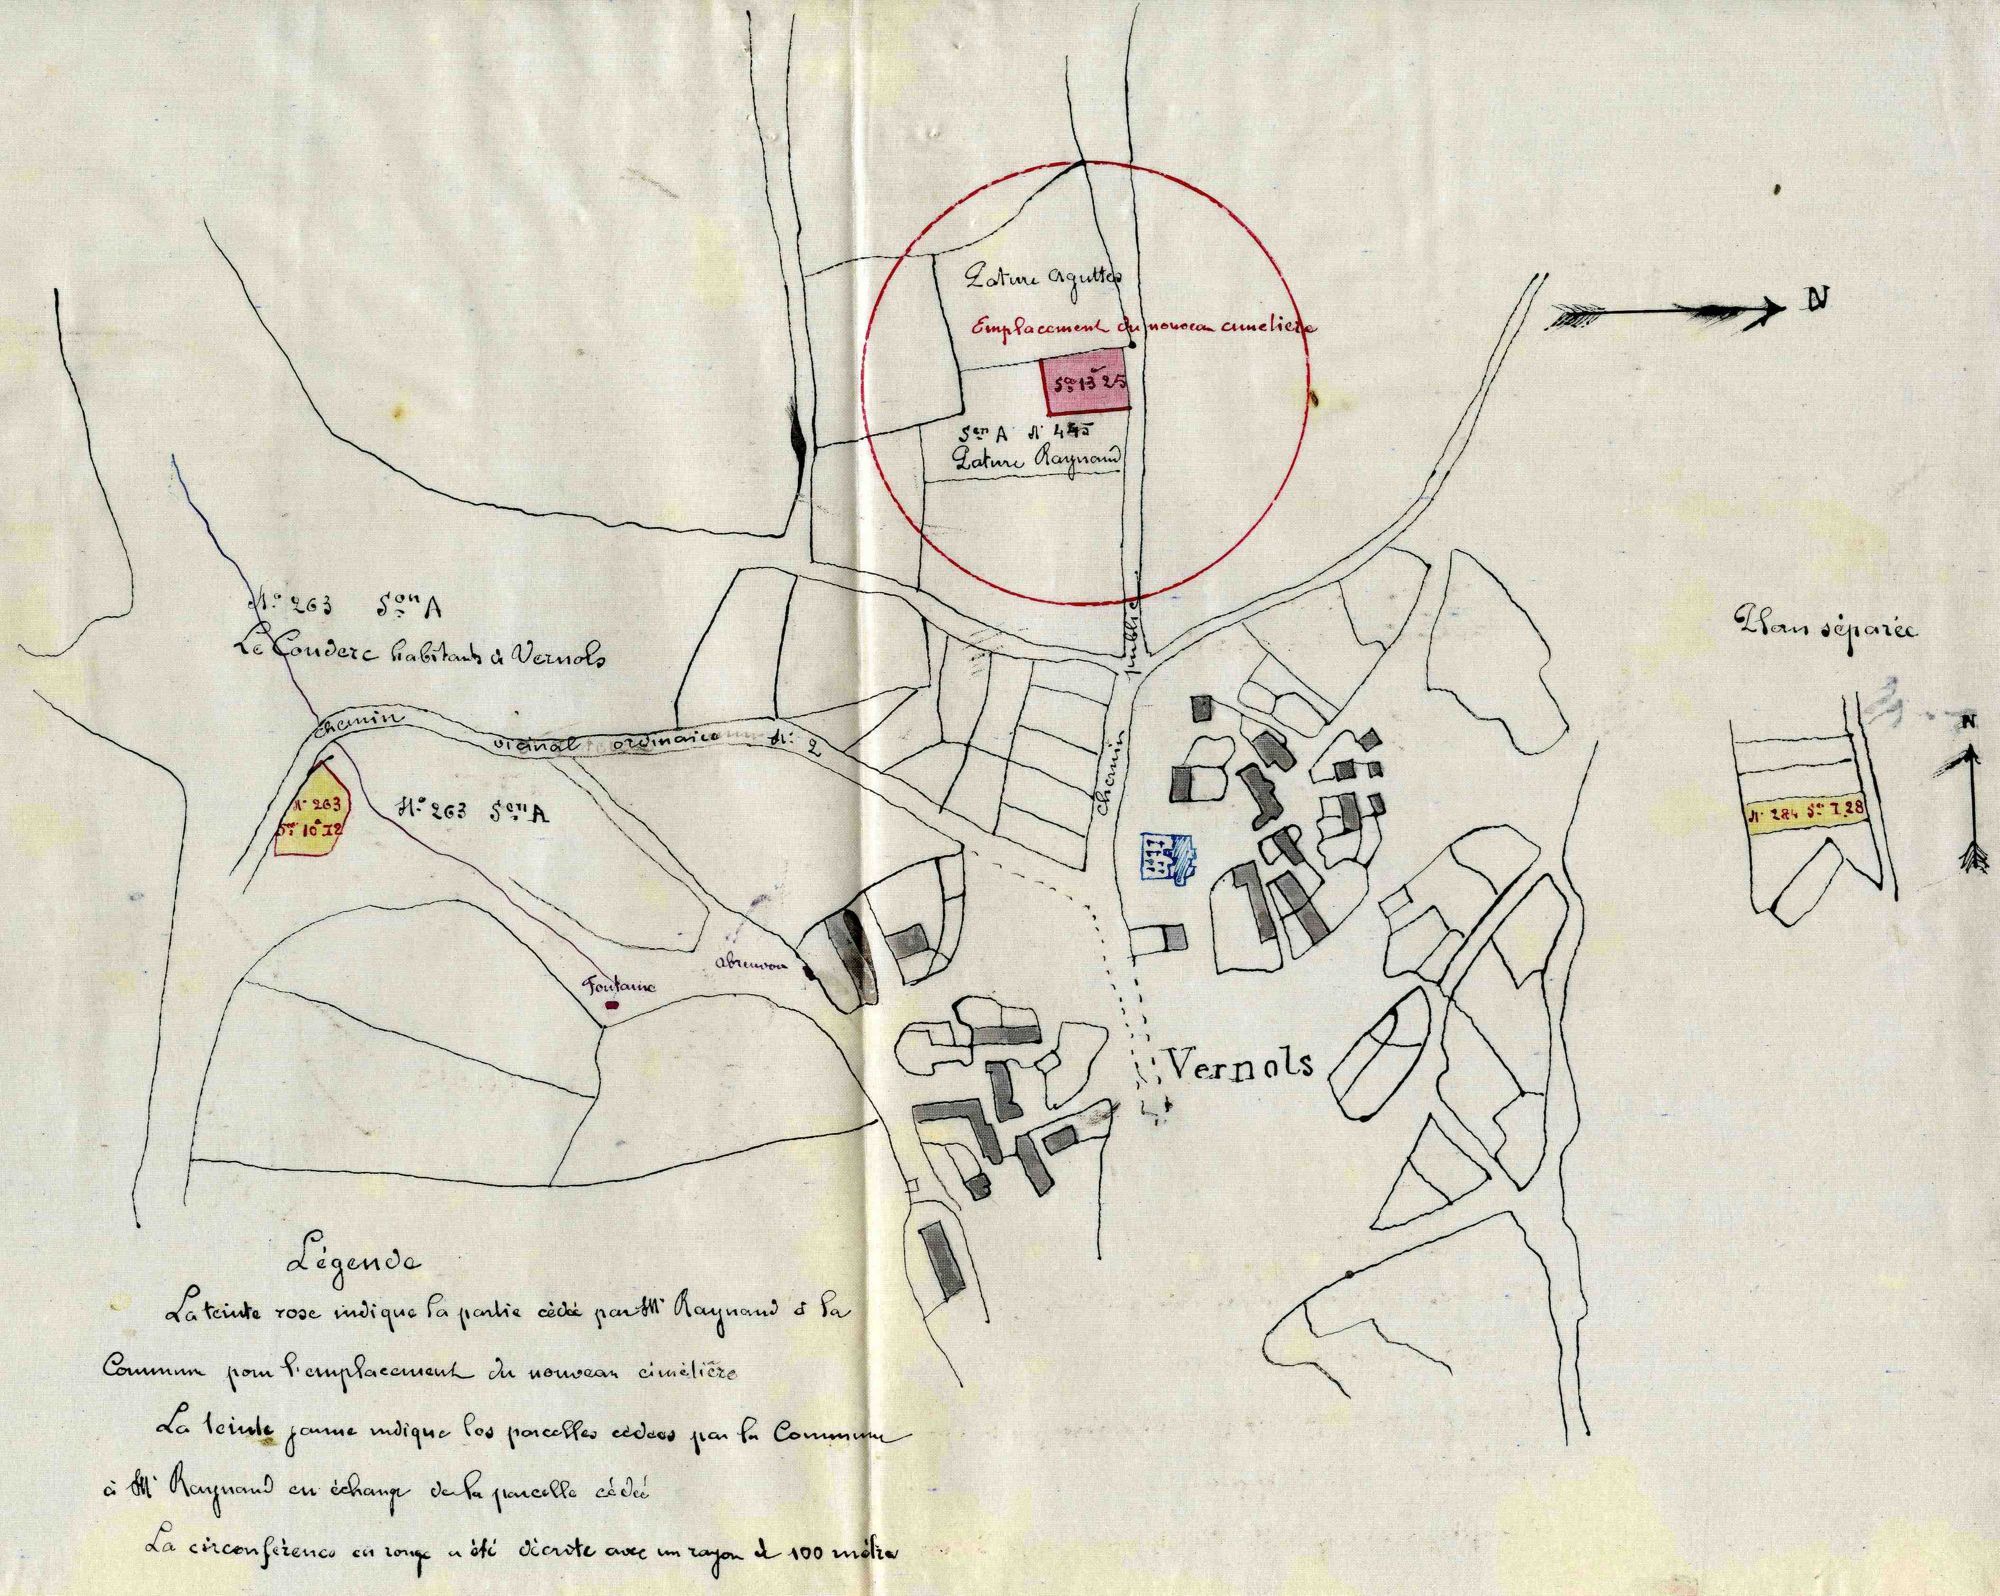 Pature Aguttes
Emplacement du nouveau cimetière
Sce 13ª 25
Son A N° 445
Pature Raynaud
N
N° 263 Son A
Le Couderc habitants à Vernols
Chemin vicinal ordinaire N° 2
N° 263
Sce 10ª 12
N° 263 Son A
Chemin public
Abreuvoir
Fontaine
Vernols
Plan séparée
N
N° 284 Sce 1.28
Légende
La teinte rose indique la partie cédée par Mr Raynaud à la
Commune pour l'emplacement du nouveau cimétière
La teinte jaune indique les parcelles cédées par la Commune
à Mr Raynaud en échange de la parcelle cédée
La circonférence en rouge a été décrite avec un rayon de 100 mètres